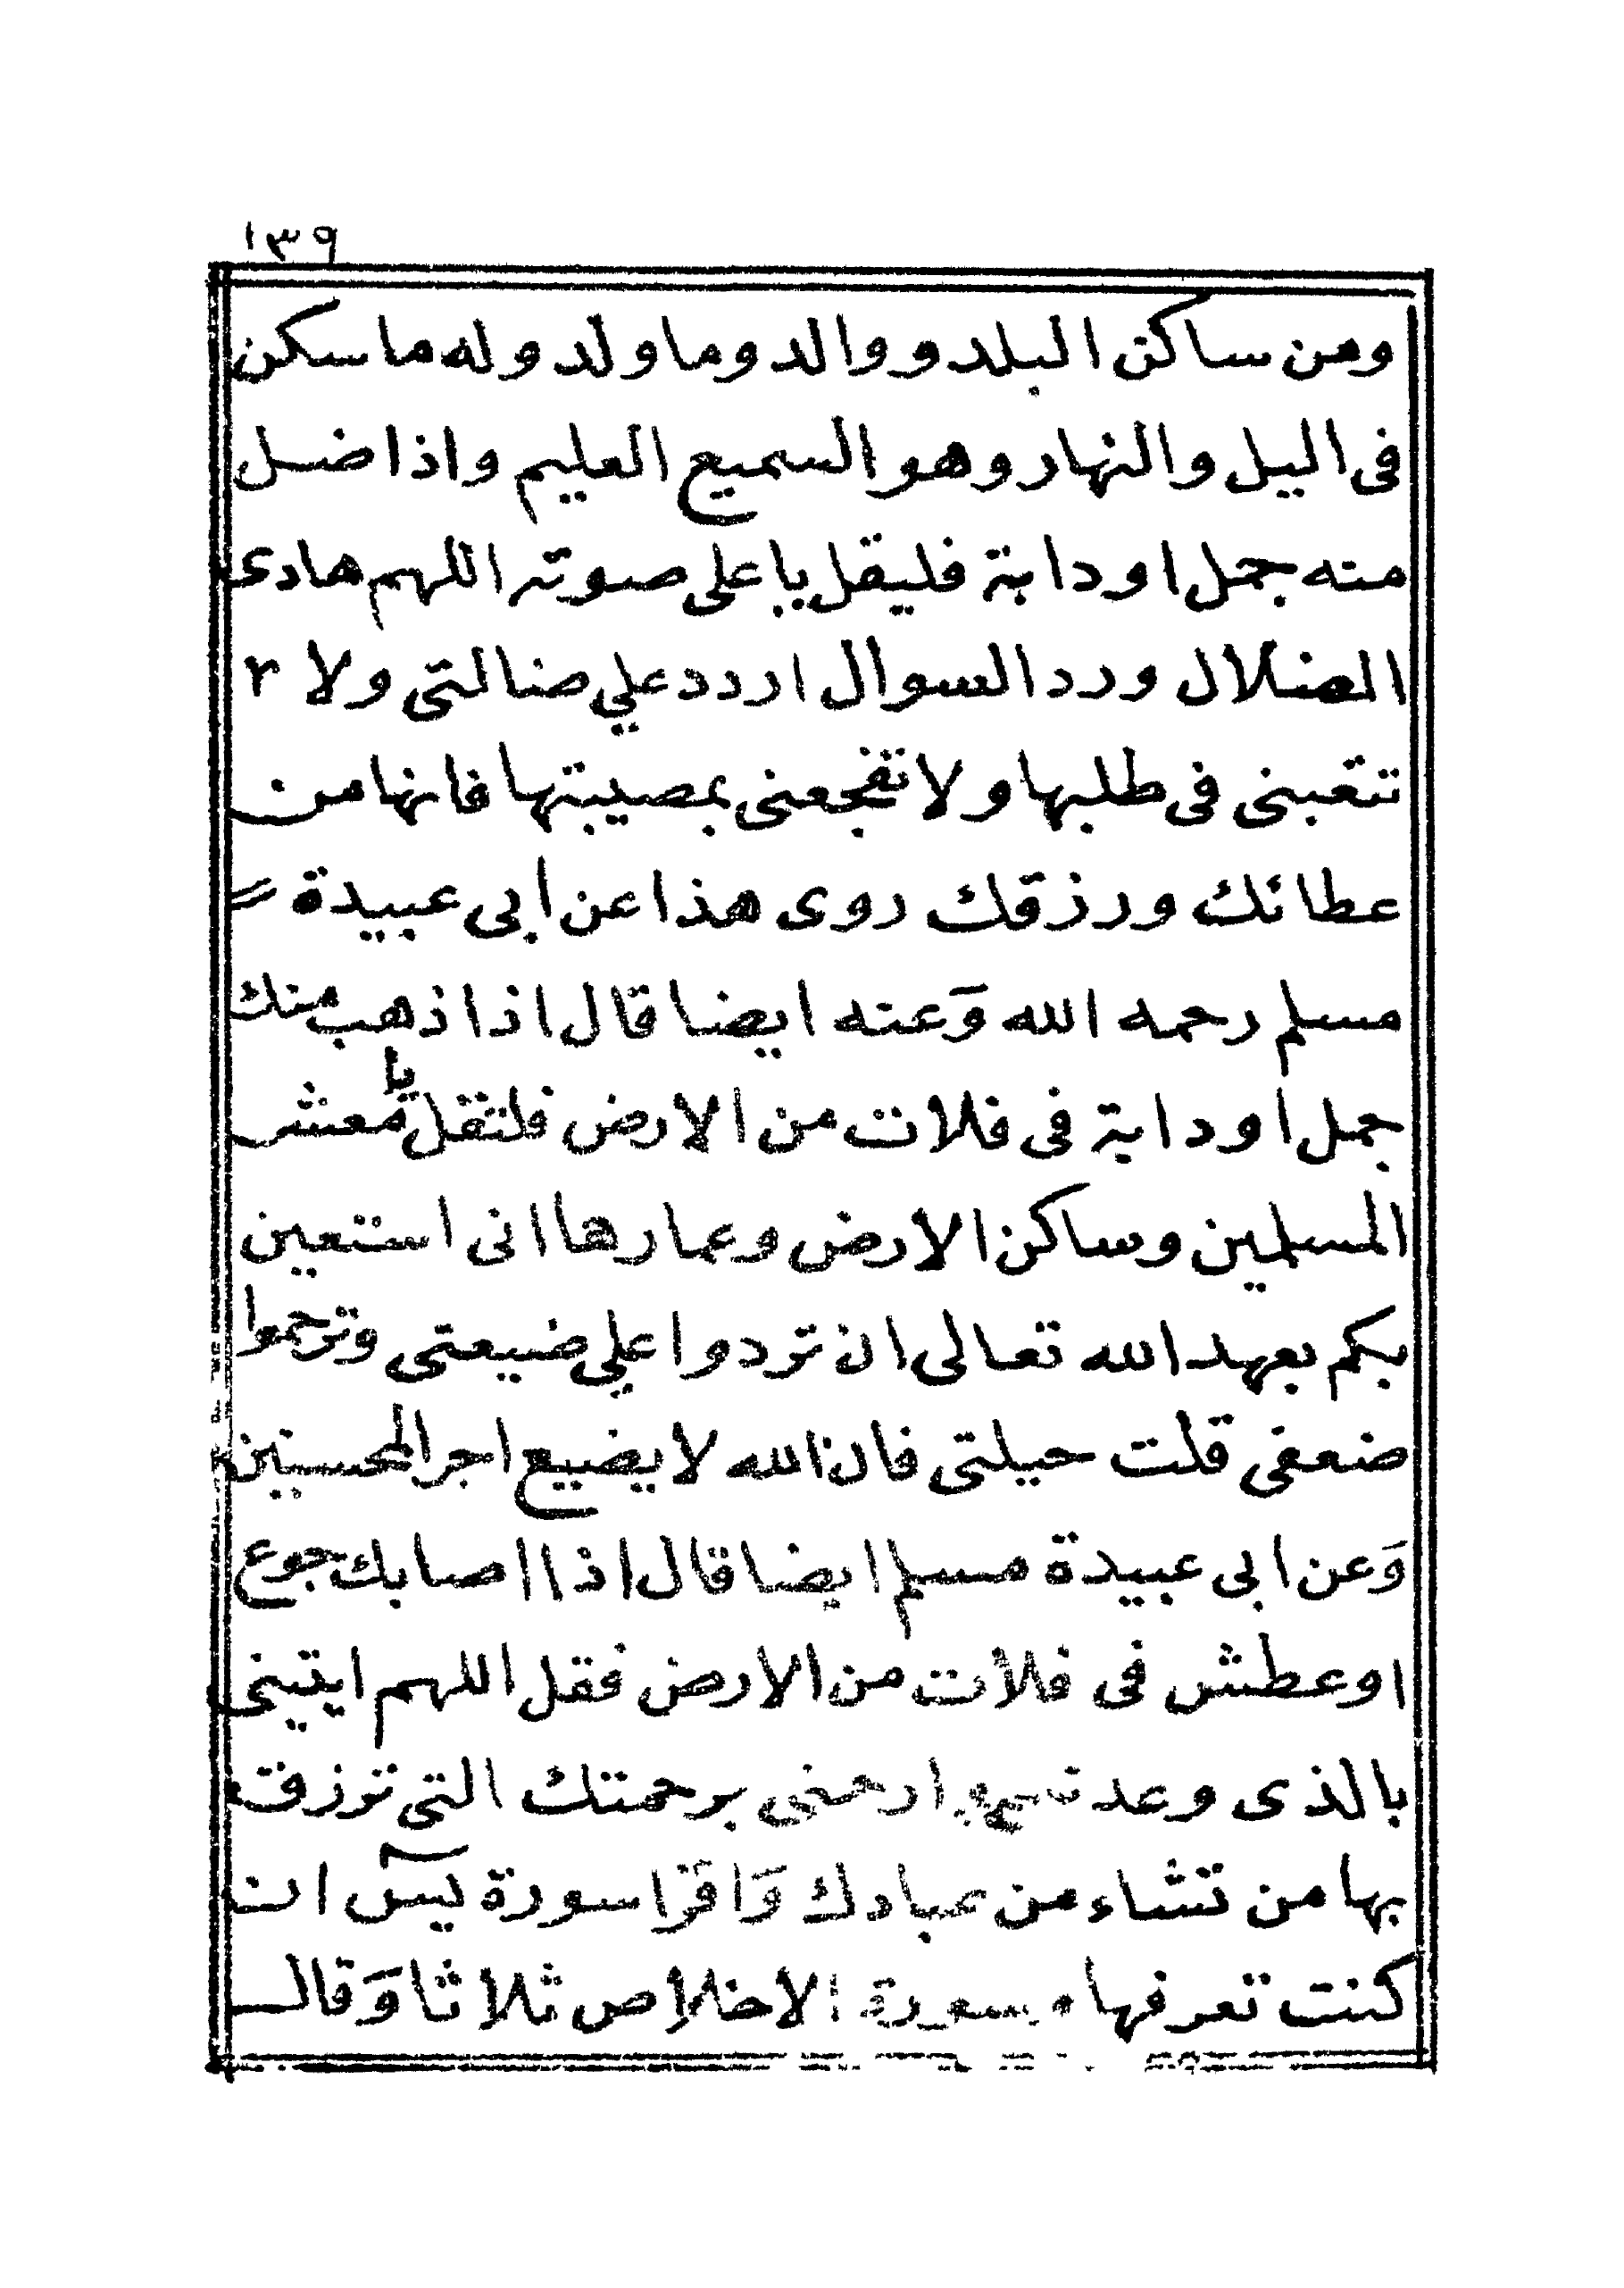 ١٣٩
ومن ساكن البلد ووالد وما ولد وله ما سكن
فى اليل والنهار وهو السميع العليم واذا ضل
منه جمل او دابة فليقل باعلى صوته اللهم هادى
الضلال ورد السوال اردد علي ضالتى ولا
تتعبنى فى طلبها ولا تفجعنى بمصيبتها فانها من
عطائك ورزقك روى هذا عن ابى عبيدة
مسلم رحمه الله وَعنه ايضا قال اذا ذهب منك
جمل او دابة فى فلات من الارض فلتقل يا معشر
المسلمين وساكن الارض وعمارها انى استعين
بكم بعهد الله تعالى ان تردوا علي ضيعتى وترحموا
ضعفى قلت حيلتى فان الله لا يضيع اجر المحسنين
وَعن ابى عبيدة مسلم ايضا قال اذا اصابك جوع
او عطش فى فلات من الارض فقل اللهم ايتينى
بالذى وعدتنى ارحمنى برحمتك التى ترزق
بها من تشاء من عبادك وَاقرَا سورة يسٓ ان
كنت تعرفها وسورة الاخلاص ثلاثا وَقال